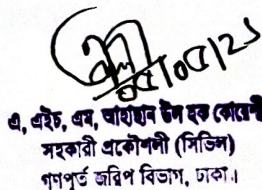 ২৫/০৫/২১
এ, এইচ, এম, আহছান উল হক কোরেশী
সহকারী প্রকৌশলী (সিভিল)
গণপূর্ত জরিপ বিভাগ, ঢাকা।